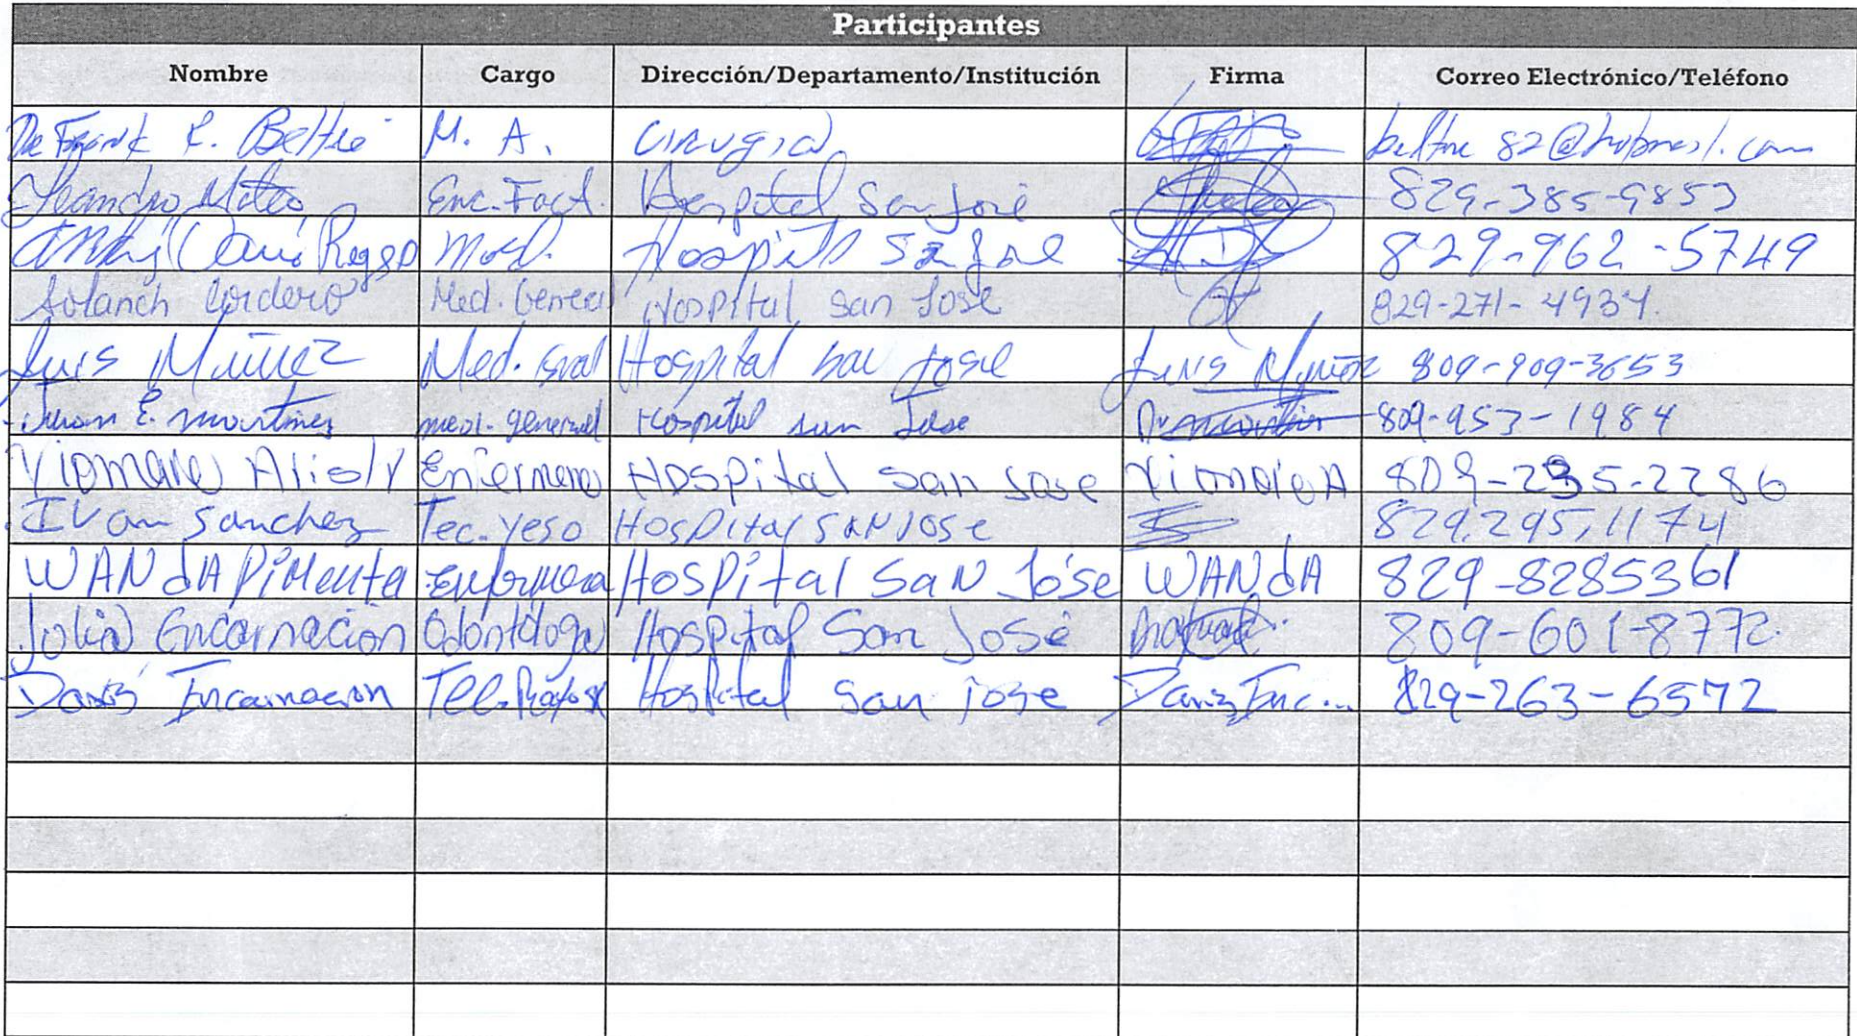 Participantes
Nombre Cargo Dirección/Departamento/Institución Firma Correo Electrónico/Teléfono
Frank R. Beltré M. A. Cirugía
Leandro Mateo Enc. Fact. Hospital San José 829-385-9853
Med. Hospital San José 829-962-5749
Solanch Cordero Med. General Hospital San José 829-271-4934
Luis Muñoz Med. Gral Hospital San José Luis Muñoz 809-909-3653
Juan E. Martinez med. general Hospital san Jose 809-953-1984
Viomare Hospital San Jose 809-235-2286
Ivan Sanchez Tec. Yeso Hospital San Jose 829.295.1174
WANdA PiMenta Enfermera HosPital SaN José WANdA 829-8285361
Julia Encarnación Odontóloga Hospital San José 809-601-8772
Encarnacion Hospital San jose 829-263-6572